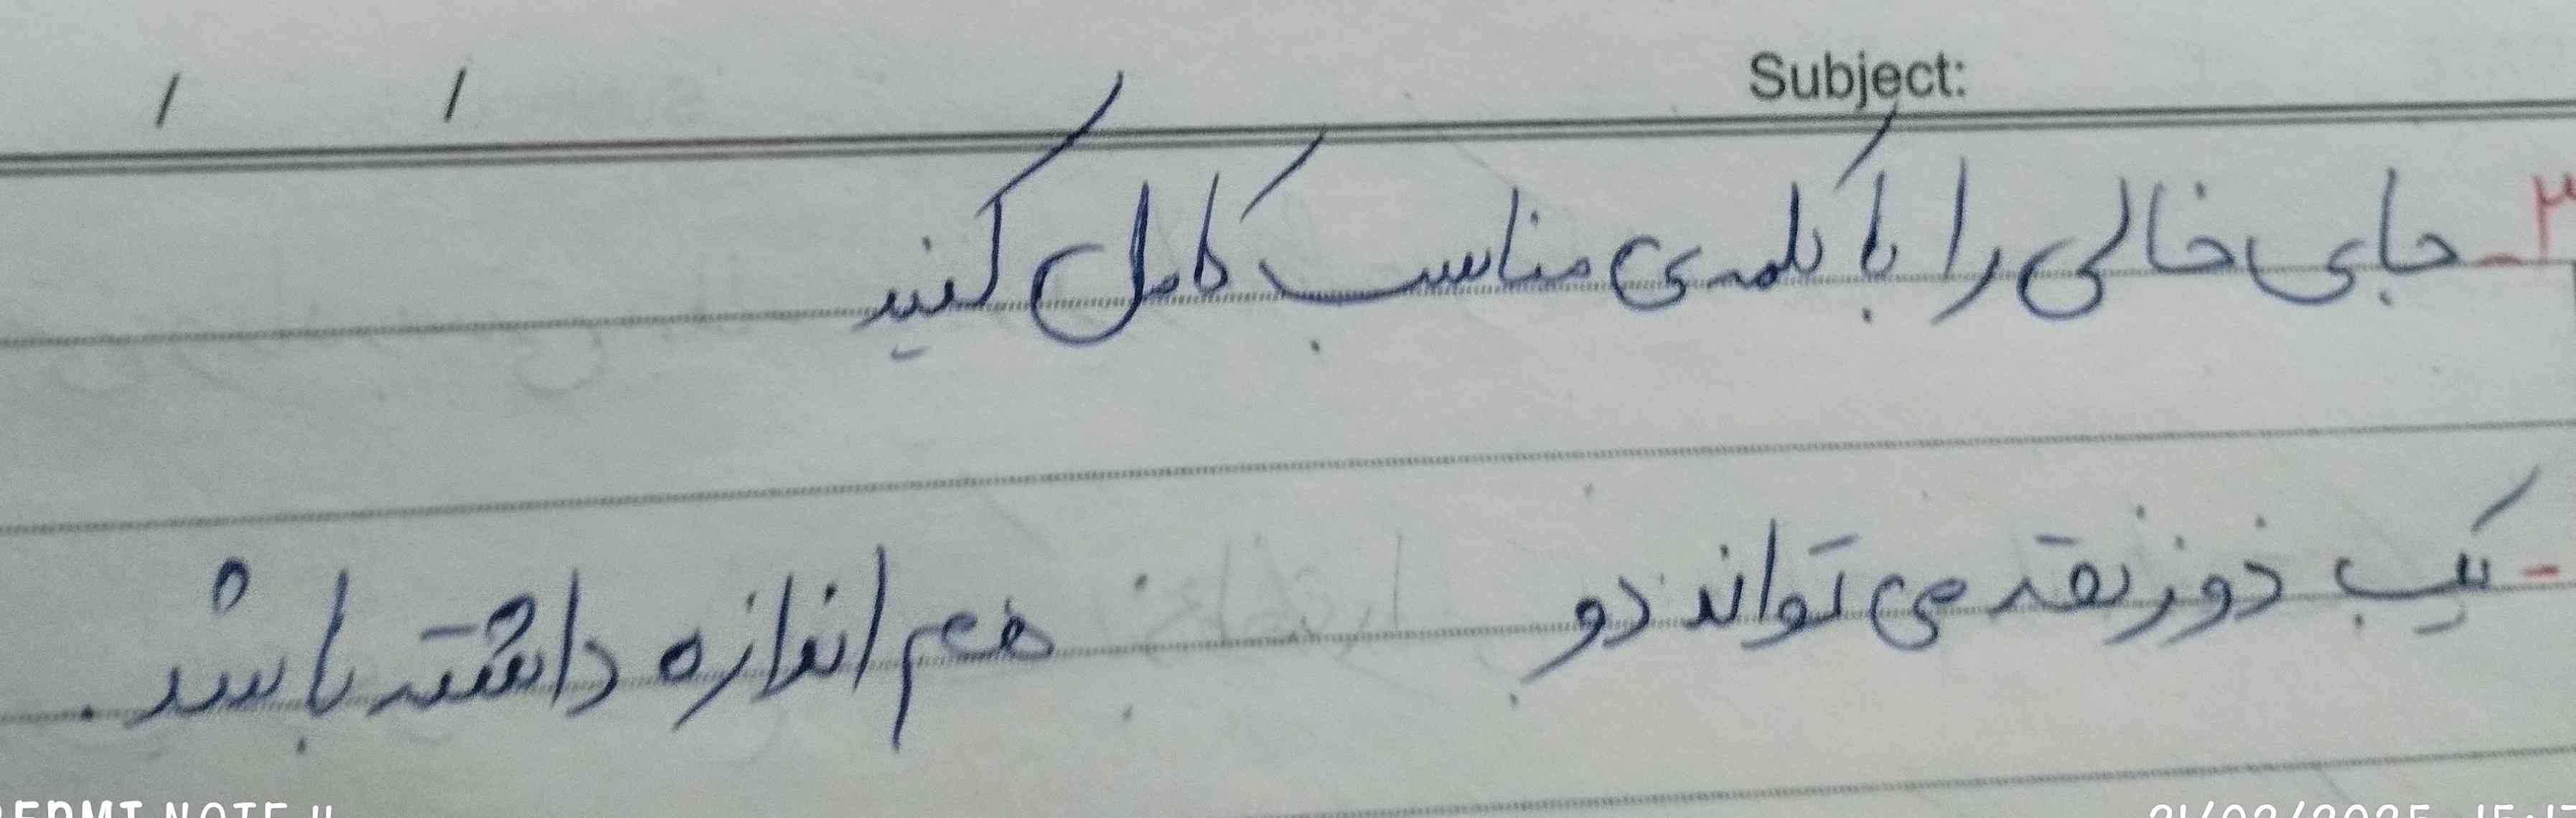 Subject: / /
۳- جای خالی را با کلمه ی مناسب کامل کنید
- یک ذوزنقه می تواند دو هم اندازه داشته باشد.